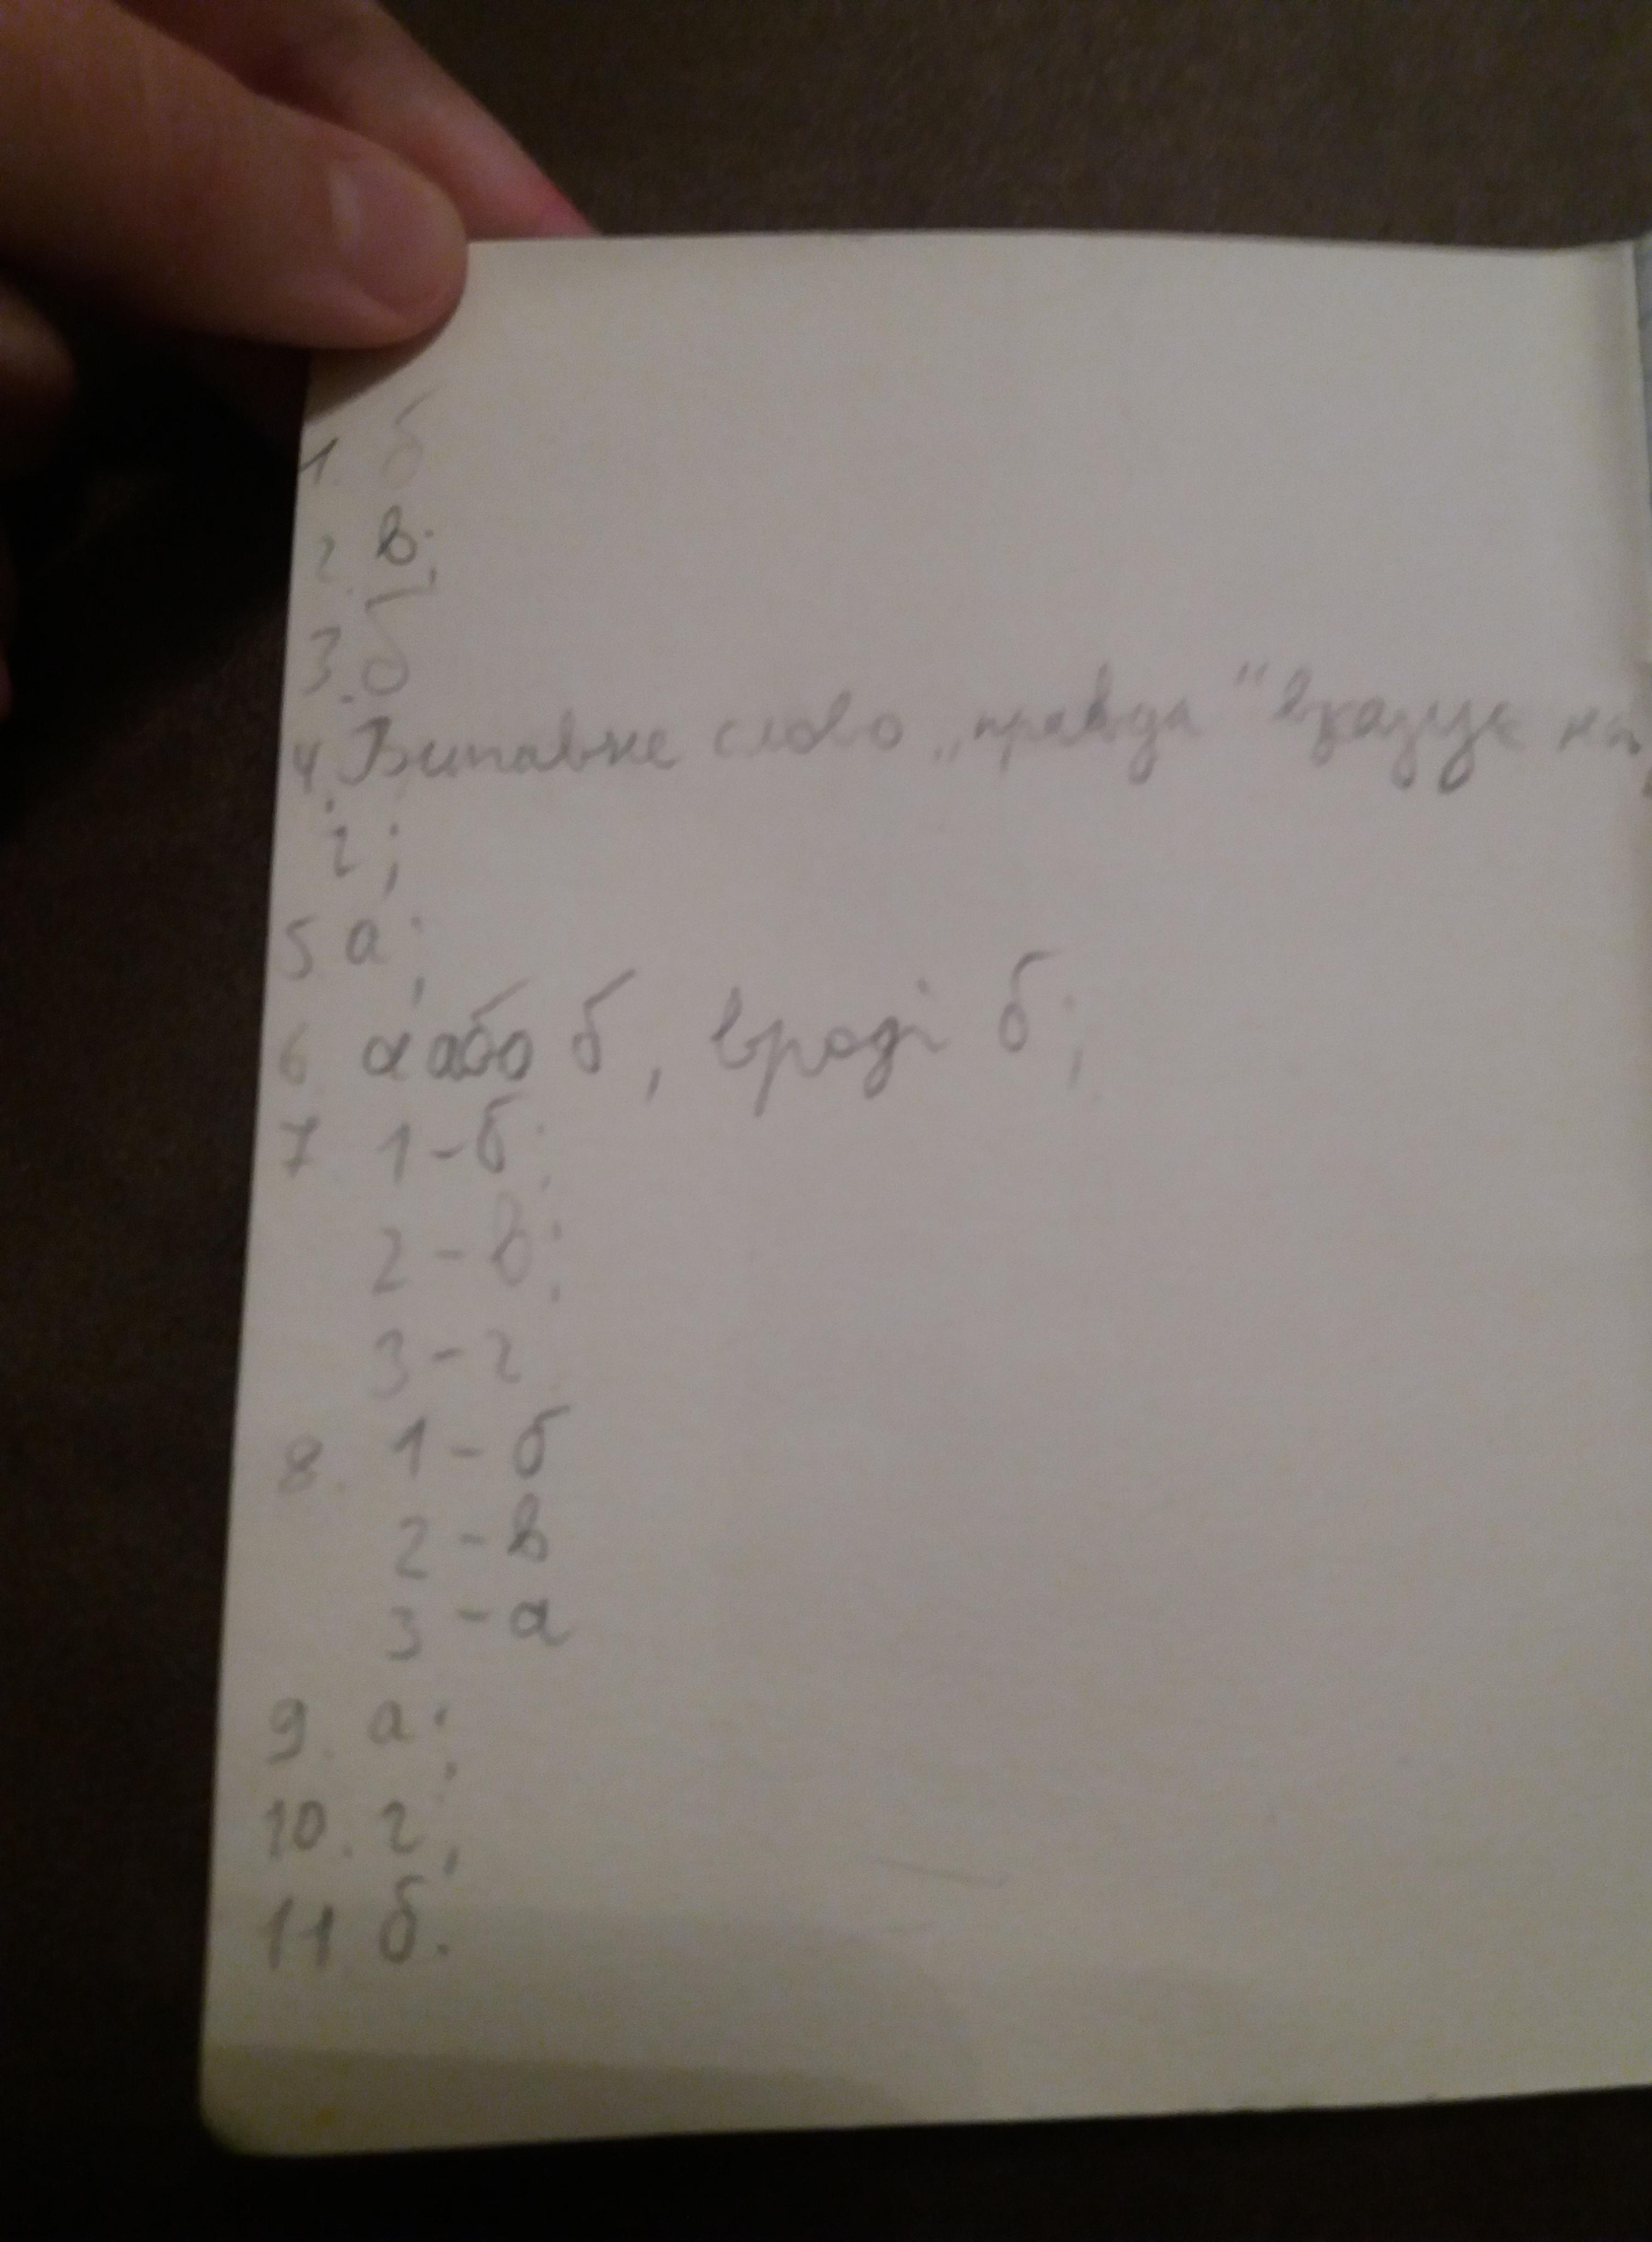 1. б
2. в;
3. б
4. Виставне слово „правда“ вказує на
г;
5 а;
6 а або б, вроді б;
7 1-б;
2-в;
3-г
8. 1-б
2-в
3-а
9. а;
10. г;
11 б.